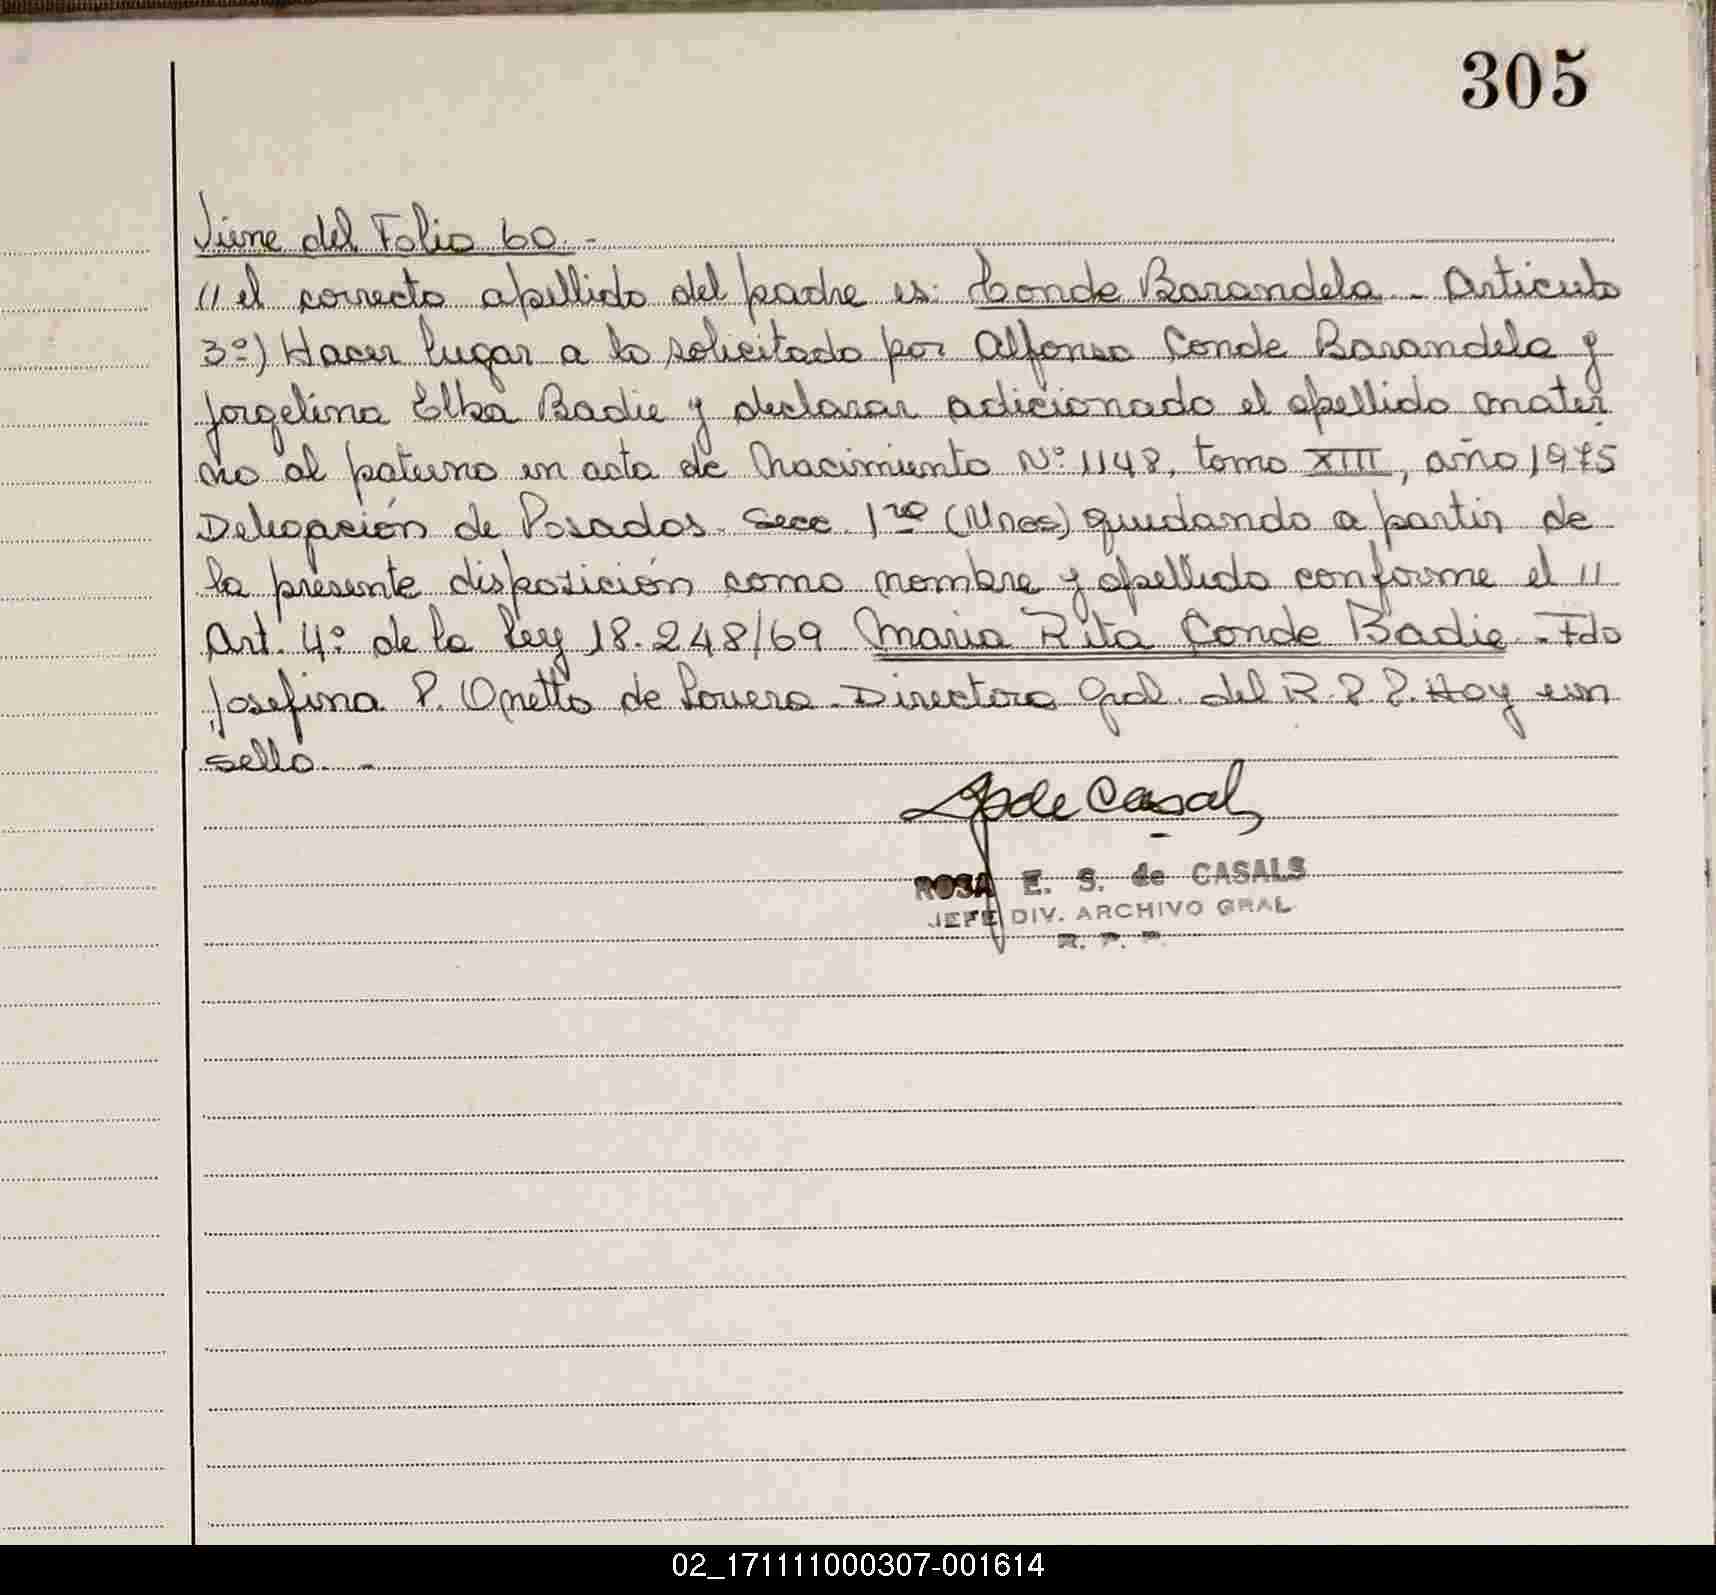 305
Viene del Folio 60.-
// el correcto apellido del padre es: Conde Barandela - Articulo
3º) Hacer lugar a lo solicitado por Alfonso Conde Barandela y
Jorgelina Elba Badie y declarar adicionado el apellido mater
no al paterno en acta de Nacimiento Nº 1148, tomo XIII, año 1975
Delegación de Posadas Secc. 1ra (Mnes) quedando a partir de
la presente disposición como nombre y apellido conforme el //
Art. 4º de la Ley 18.248/69 Maria Rita Conde Badie - Fdo
Josefina P. Onetto de Lovera - Directora Gral. del R.P.P. Hay un
sello. -
de Casals
ROSA E. S. de CASALS
JEFE DIV. ARCHIVO GRAL.
R. P. P.
02_171111000307-001614